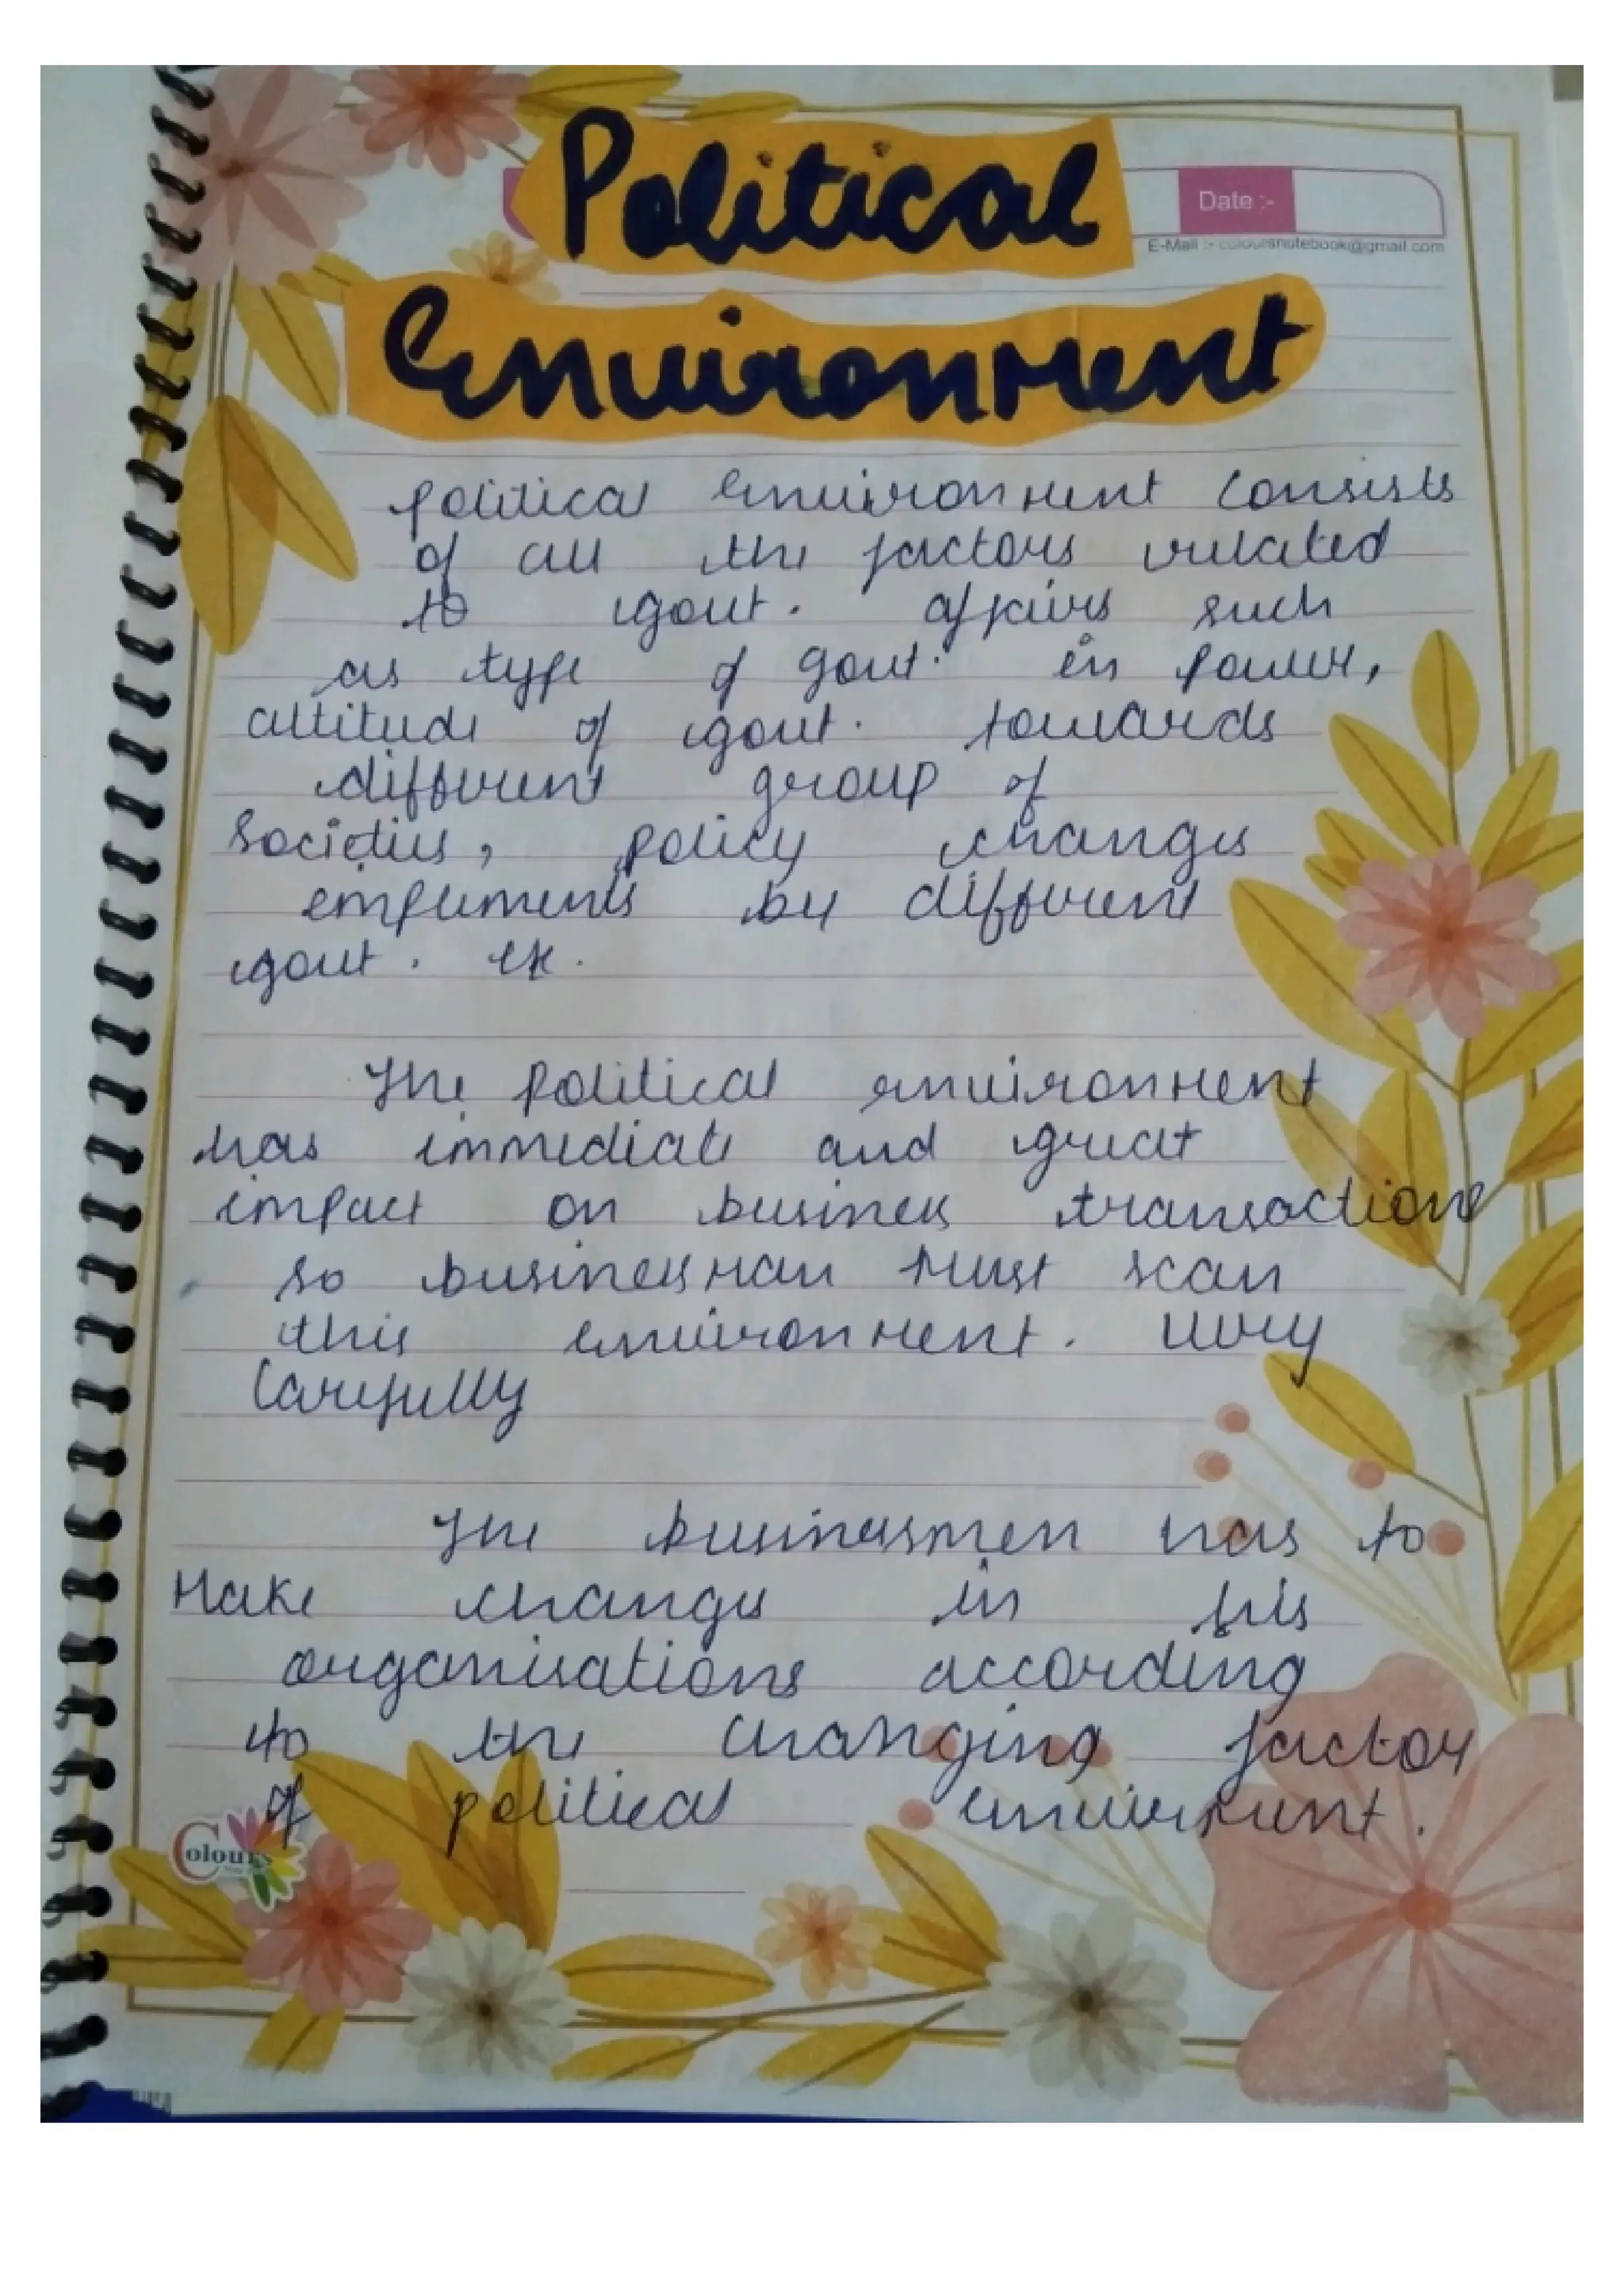 Political
Date :-
E-Mail :- coloursnotebook@gmail.com
Environment
Political Environment Consists
of all the factors related
to govt. affairs such
as type of govt. in power,
attitude of govt. towards
different group of
Societies, policy changes
empliments by different
govt. ex.
The Political environment
has immediate and great
impact on business transactions
so businessman must scan
this environment. very
Carefully
The businessmen has to
Make changes in his
organisations according
to the Changing factor
of political enviernment.
Colours